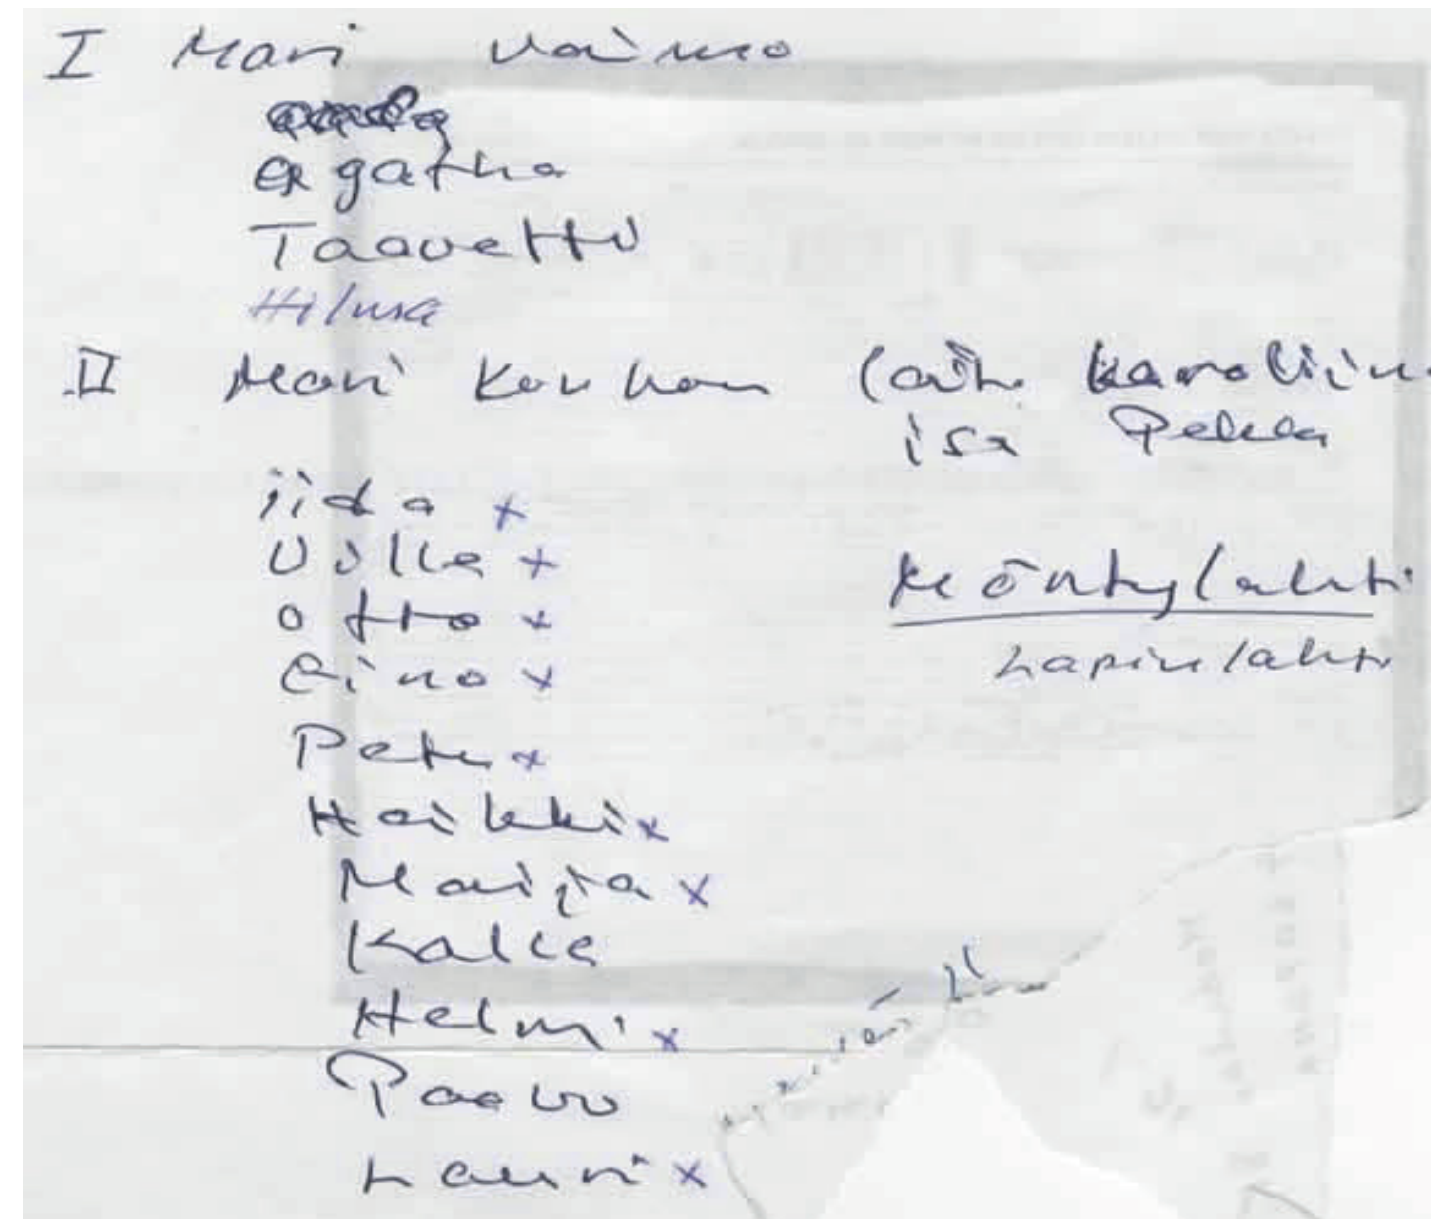 I Mari vaimo
Agatha
Taavetti
Hilma
II Mari (äiti Karoliin
isä Pekka
iida x
Ville x
otto x
Eino x
x
Heikki x
Maija x
Kalle
Helmi x
Paavo
Lauri x
Möntylahti
Lapinlahti